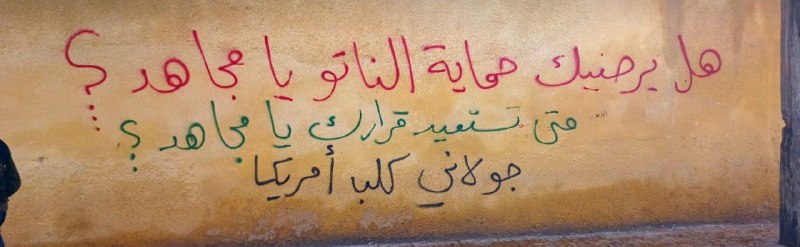 هل يرضيك حماية الناتو يا مجاهد؟
متى تستعيد قرارك يا مجاهد؟
جولاني كلب أمريكا